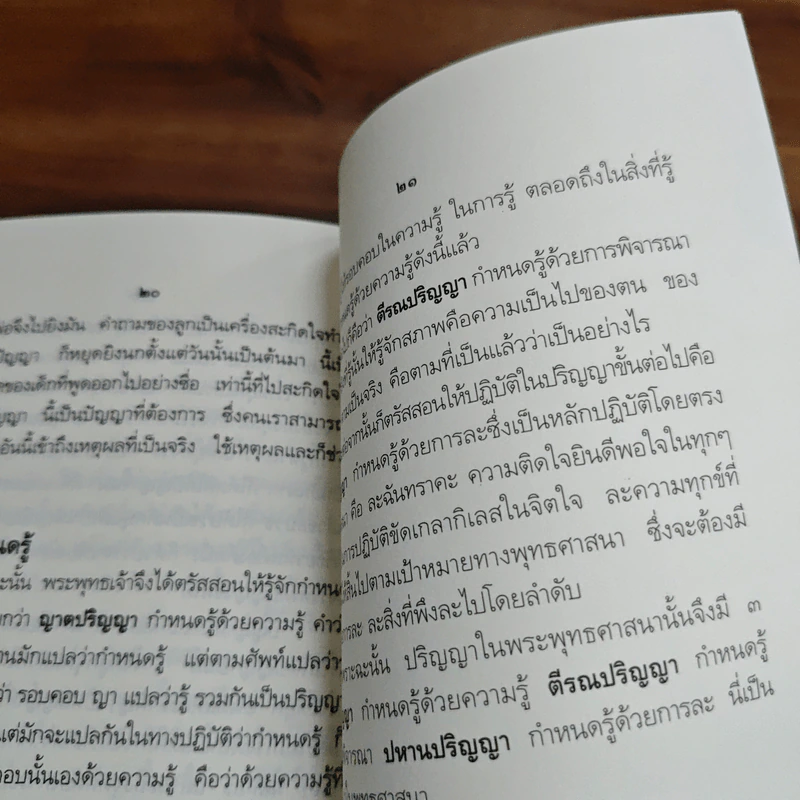 ๒๐
จึงไปยิงมัน คำถามของลูกเป็นเครื่องสะกิดใจทำ
ปัญญา ก็หยุดยิงนกตั้งแต่วันนั้นเป็นต้นมา
ของเด็กที่พูดออกไปอย่างซื่อ เท่านี้ที่ไปสะกิดใจ
นี้เป็นปัญญาที่ต้องการ ซึ่งคนเราสามารถ
อันนี้เข้าถึงเหตุผลที่เป็นจริง ใช้เหตุผลและก็
รู้
ฉะนั้น พระพุทธเจ้าจึงได้ตรัสสอนให้รู้จักกำหนด
กว่า ญาตปริญญา กำหนดรู้ด้วยความรู้ คำว่า
มักแปลว่ากำหนดรู้ แต่ตามศัพท์แปลว่า
ว่า รอบคอบ ญา แปลว่ารู้ รวมกันเป็นปริญญา
แต่มักจะแปลกันในทางปฏิบัติว่ากำหนดรู้
นั้นเองด้วยความรู้ คือว่าด้วยความรู้ที่
๒๑
รอบคอบในความรู้ ในการรู้ ตลอดถึงในสิ่งที่รู้
รู้ด้วยความรู้ดังนี้แล้ว
ก็คือว่า ตีรณปริญญา กำหนดรู้ด้วยการพิจารณา
รู้นั้นให้รู้จักสภาพคือความเป็นไปของตน ของ
เป็นจริง คือตามที่เป็นแล้วว่าเป็นอย่างไร
จากนั้นก็ตรัสสอนให้ปฏิบัติในปริญญาขั้นต่อไปคือ
กำหนดรู้ด้วยการละซึ่งเป็นหลักปฏิบัติโดยตรง
คือ ละฉันทราคะ ความติดใจยินดีพอใจในทุกๆ
การปฏิบัติขัดเกลากิเลสในจิตใจ ละความทุกข์ที่
สิ้นไปตามเป้าหมายทางพุทธศาสนา ซึ่งจะต้องมี
การละ ละสิ่งที่พึงละไปโดยลำดับ
เพราะฉะนั้น ปริญญาในพระพุทธศาสนานั้นจึงมี ๓
กำหนดรู้ด้วยความรู้ ตีรณปริญญา กำหนดรู้
พิจารณา ปหานปริญญา กำหนดรู้ด้วยการละ นี่เป็น
พุทธศาสนา